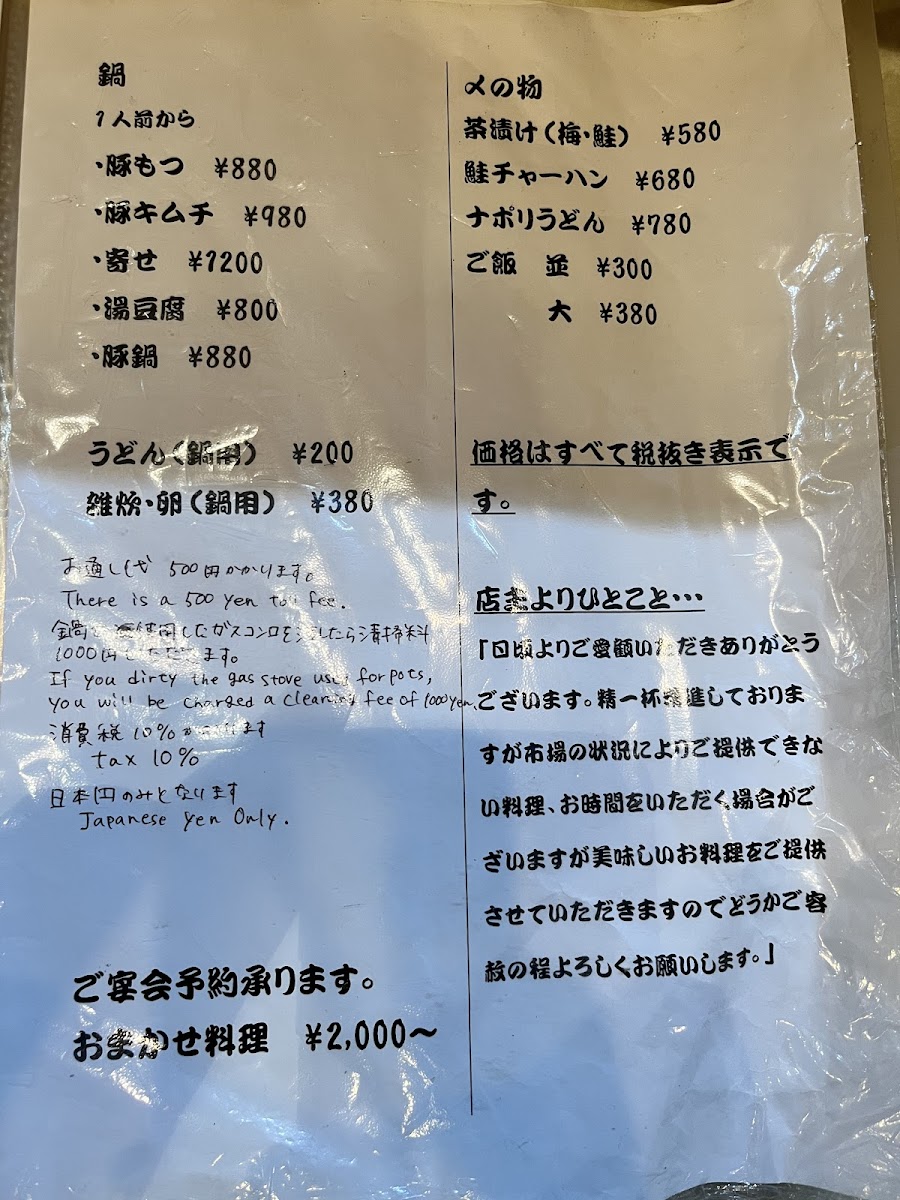 鍋
1人前から
・豚もつ ¥880
・豚キムチ ¥980
・寄せ ¥1200
・湯豆腐 ¥800
・豚鍋 ¥880
うどん(鍋用) ¥200
雑炊・卵(鍋用) ¥380
お通し代 500円かかります。
There is a 500 yen fee.
鍋で使用したガスコンロを したら清掃料
1000円いただきます。
If you dirty the gas stove used for pots,
you will be charged a cleaning fee of 1000yen.
消費税10%かかります
tax 10%
日本円のみとなります
Japanese yen Only.
ご宴会予約承ります。
おまかせ料理 ¥2,000〜
〆の物
茶漬け(梅・鮭) ¥580
鮭チャーハン ¥680
ナポリうどん ¥780
ご飯 並 ¥300
大 ¥380
価格はすべて税抜き表示で
す。
店主よりひとこと…
「日頃よりご愛顧いただきありがとう
ございます。精一杯精進しておりま
すが市場の状況によりご提供できな
い料理、お時間をいただく場合がご
ざいますが美味しいお料理をご提供
させていただきますのでどうかご容
赦の程よろしくお願いします。」